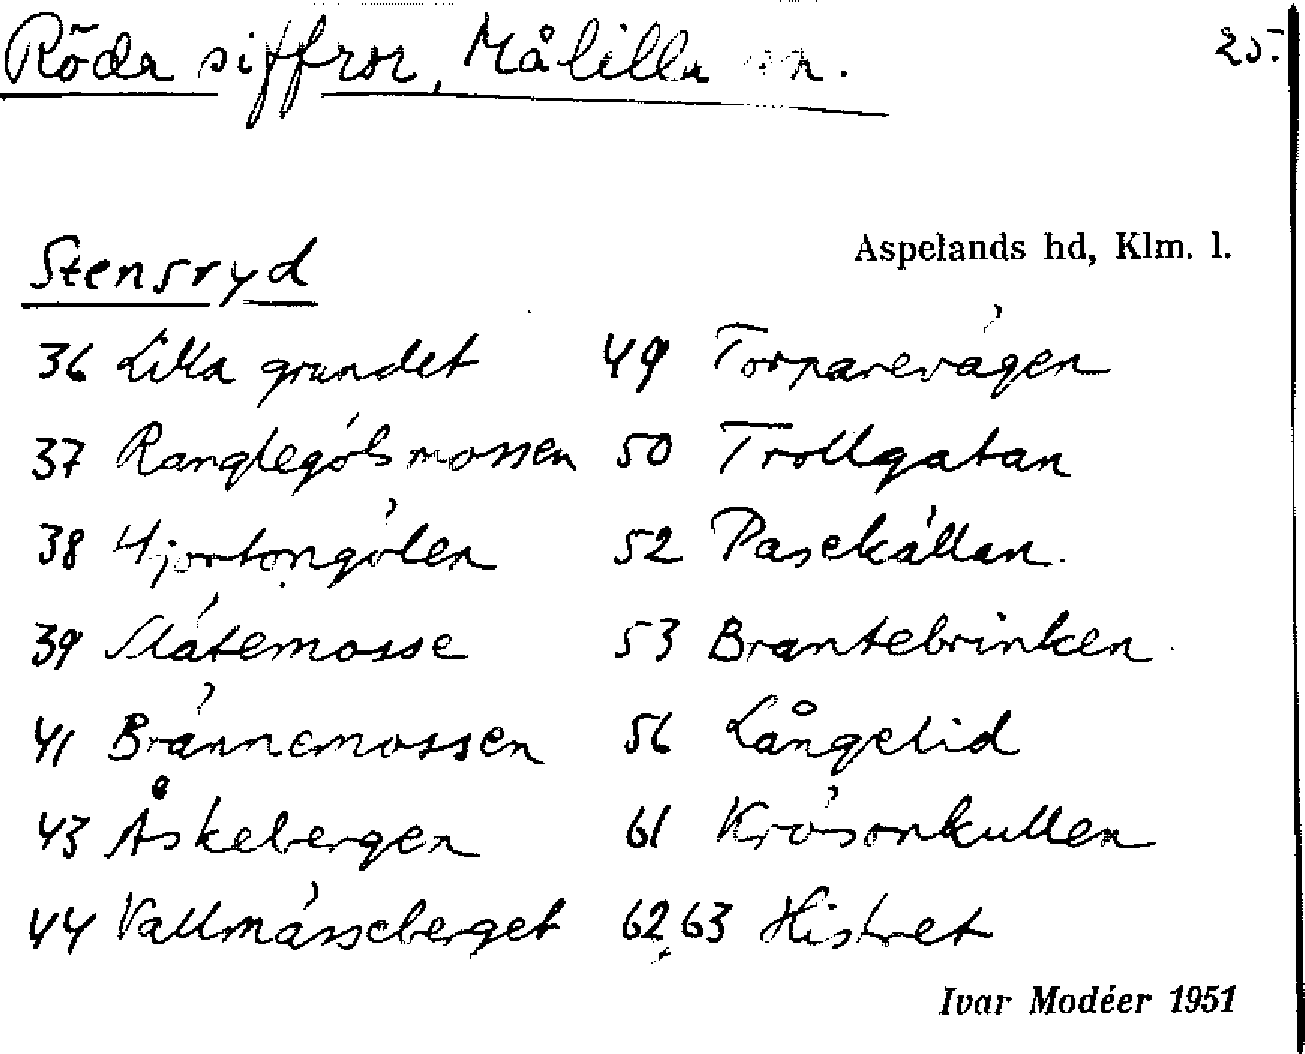 Röda siffror, Målilla sn. 25.
Aspelands hd, Klm. l.
Stensryd
36 Lilla grundet
37 Ranglegölsmossen
38 Hjortongölen
39 Slätemosse
41 Brännemossen
43 Åskebergen
44 Vallmässeberget
49 Torparevägen
50 Trollgatan
52 Pasekällan.
53 Brantebrinken
56 Långelid
61 Krösonkullen
62, 63 Histret
Ivar Modéer 1951